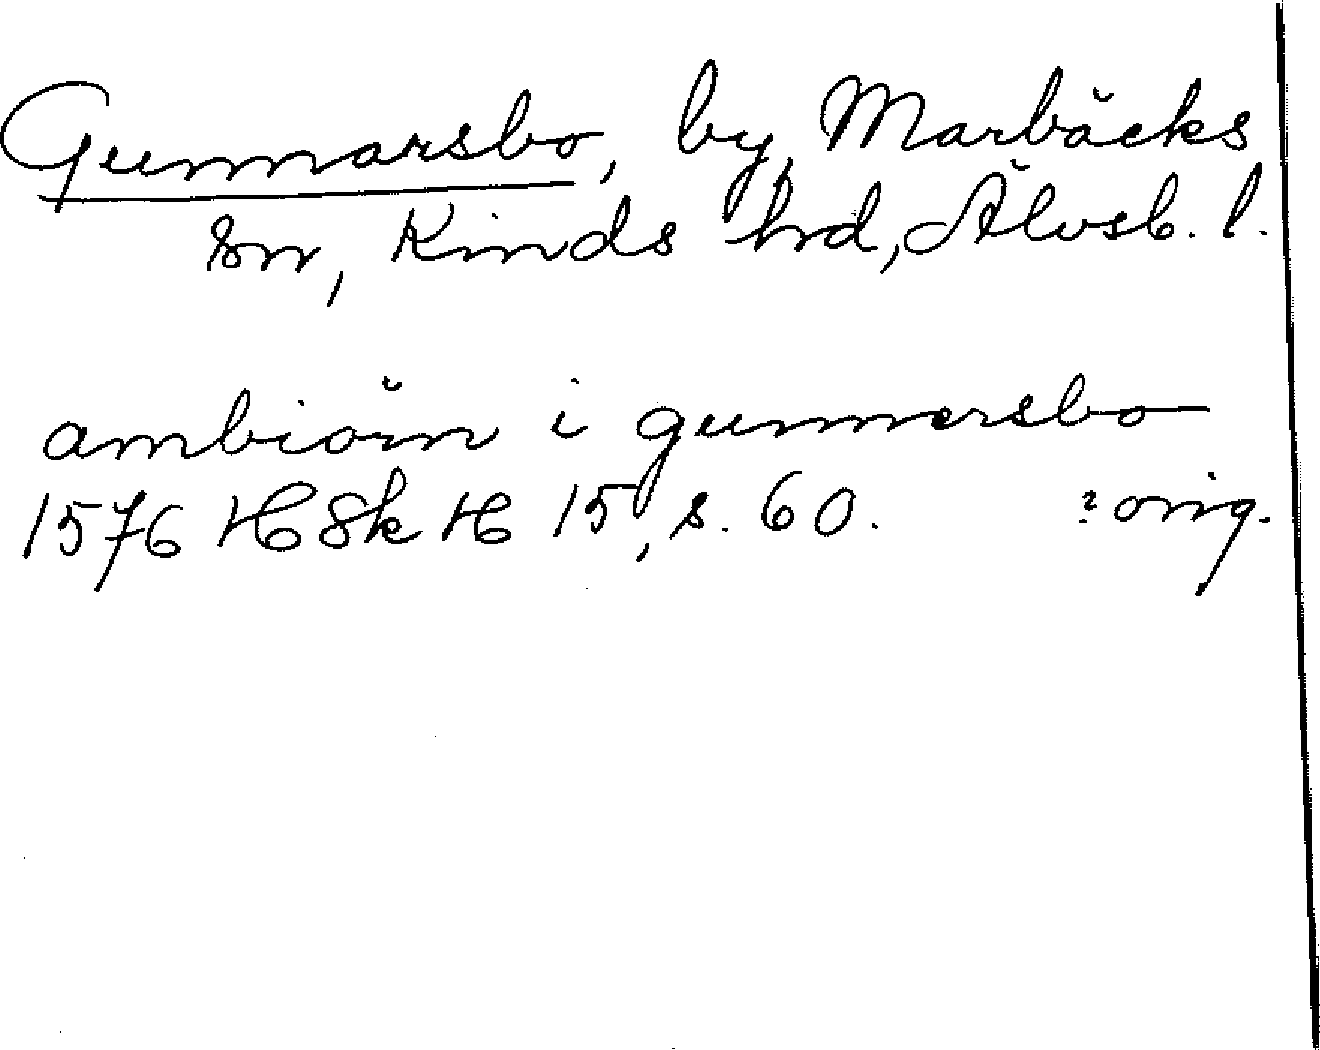 Gunnarsbo, by, Marbäcks
sn, Kinds hrd, Älvsb. l.
ambiörn i gunnersbo
1576 HSkH 15, s. 60. ? orig.